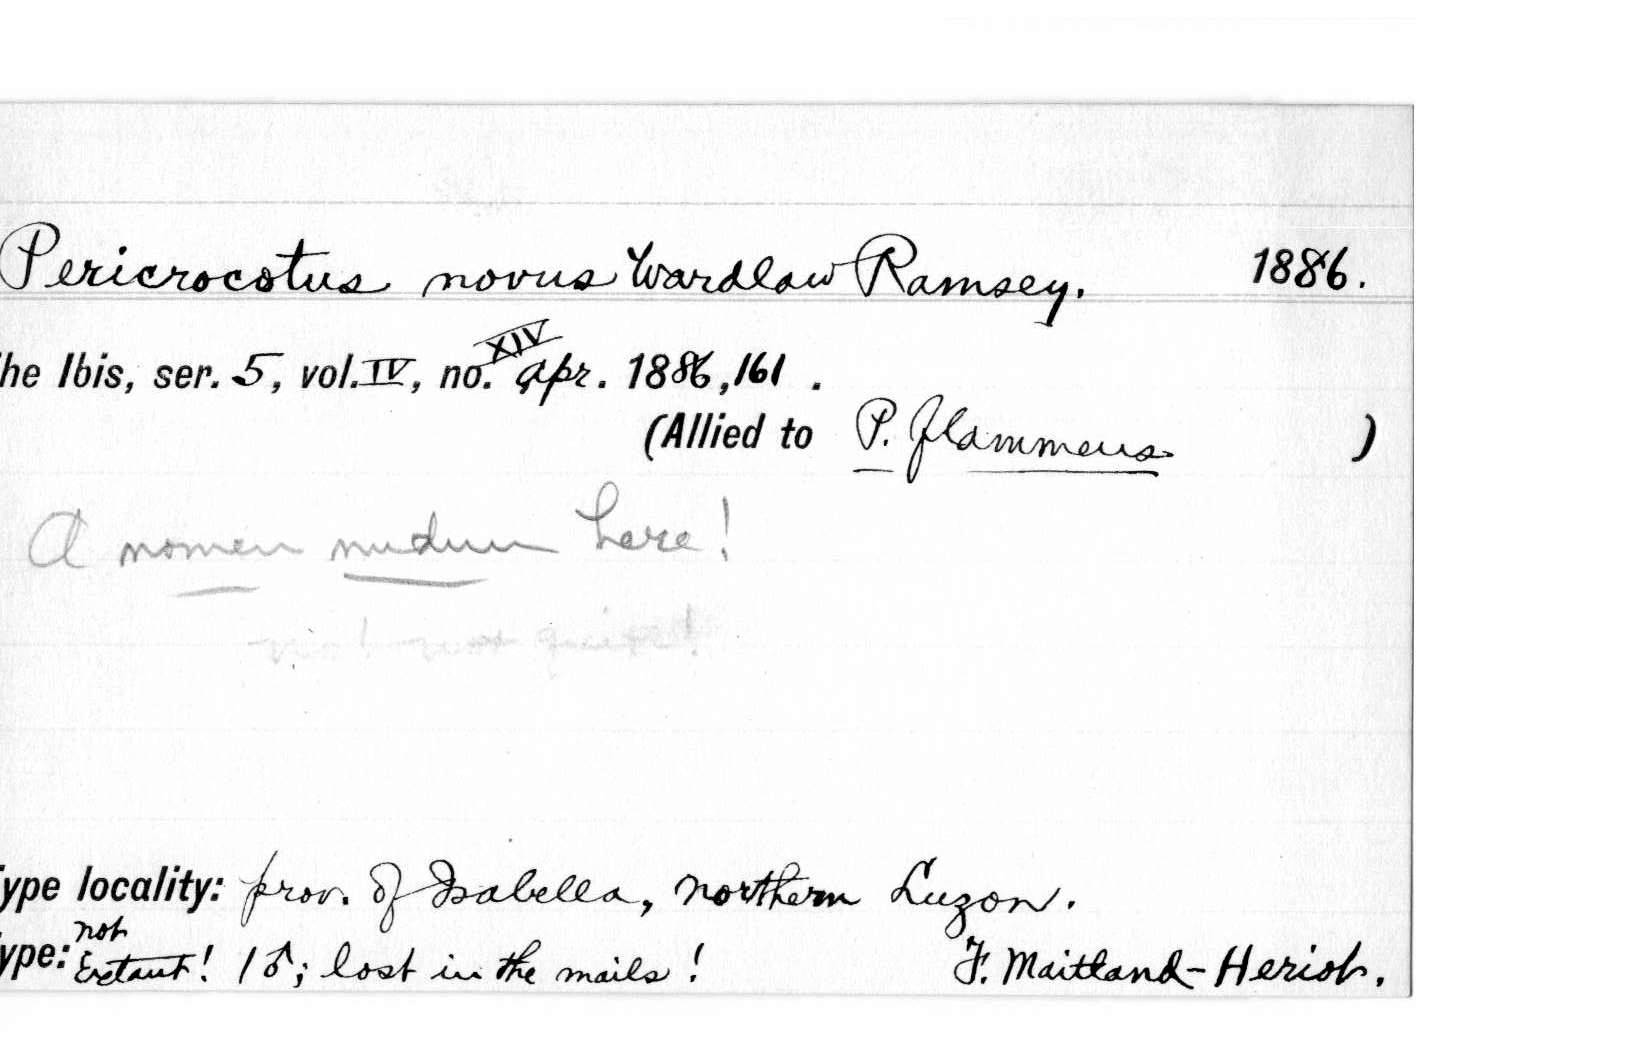 Pericrocotus novus Wardlaw Ramsey. 1886.
he Ibis, ser. 5, vol. IV, no. XIV Apr. 1886, 161 .
(Allied to P. flammeus )
A nomen nudum here!
ype locality: prov. of Isabella, northern Luzon.
ype: not Extant! 1♂; lost in the mails! F. Maitland-Heriot.